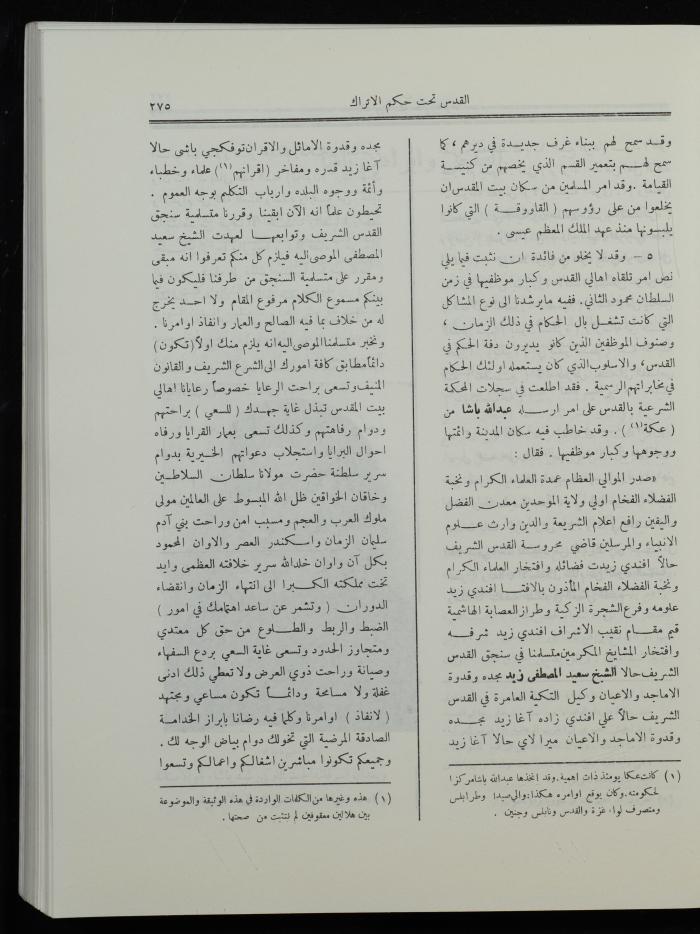 القدس تحت حكم الاتراك
٢٧٥
وقد سمح لهم ببناء غرف جديدة في ديرهم ، كما
سمح لهم بتعمير القسم الذي يخصهم من كنيسة
القيامة . وقد امر المسلمين من سكان بيت المقدس ان
يخلعوا من على رؤوسهم ( القاروقة ) التي كانوا
يلبسونها منذ عهد الملك المعظم عيسى .
٥ – وقد لا يخلو من فائدة ان نثبت فيما يلي
نص امر تلقاه اهالي القدس وكبار موظفيها في زمن
السلطان محمود الثاني . ففيه ما يرشدنا الى نوع المشاكل
التي كانت تشغل بال الحكام في ذلك الزمان ،
وصنوف الموظفين الذين كانو يديرون دفة الحكم في
القدس ، والاسلوب الذي كان يستعمله اولئك الحكام
في مخابراتهم الرسمية . فقد اطلعت في سجلات المحكمة
الشرعية بالقدس على امر ارسله عبدالله باشا من
( عكة(١) ) . وقد خاطب فيه سكان المدينة وائمتها
ووجوهها وكبار موظفيها . فقال :
«صدر الموالي العظام عمدة العلماء الكرام ونخبة
الفضلاء الفخام اولي ولاية الموحدين معدن الفضل
واليقين رافع إعلام الشريعة والدين وارث علوم
الانبياء والمرسلين قاضي محروسة القدس الشريف
حالاً افندي زيدت فضائله وافتخار العلماء الكرام
ونخبة الفضلاء الفخام المأذون بالافتا افندي زيد
علومه وفرع الشجرة الزكية وطراز العصابة الهاشمية
قيم مقام نقيب الاشراف افندي زيد شرفه
وافتخار المشايخ المكرمين متسلمنا في سنجق القدس
الشريف حالا الشيخ سعيد المصطفى زيد مجده وقدوة
الاماجد والاعيان وكيل التكية العامرة في القدس
الشريف حالاً علي افندي زاده آغا زيد مجده
وقدوة الاماجد والاعيان ميرا لاي حالا آغا زيد
(١) كانت عكا يومئذ ذات اهمية . وقد اتخذها عبدالله باشا مركزا
لحكومته . وكان يوقع اوامره هكذا : والي صيدا وطرابلس
ومتصرف لواء غزة والقدس ونابلس وجنين .
مجده وقدوة الاماثل والاقران توفكجي باشي حالا
آغا زيد قدره ومفاخر (اقرانهم(١)) علماء وخطباء
وأئمة ووجوه البلده وارباب التكلم بوجه العموم .
تحيطون علماً انه الآن ابقينا وقررنا متسلمية سنجق
القدس الشريف وتوابعها لعهدت الشيخ سعيد
المصطفى الموصى اليه فيلزم كل منكم تعرفوا انه مبقى
ومقرر على متسلمية السنجق من طرفنا فليكون فيما
بينكم مسموع الكلام مرفوع المقام ولا احد يخرج
له من خلاف بما فيه الصالح والعمار وانفاذ اوامرنا .
ونخبر متسلمنا الموصى اليه انه يلزم منك اولاً (تكون)
دائماً مطابق كافة امورك الى الشرع الشريف والقانون
المنيف وتسعى براحت الرعايا خصوصاً رعايانا اهالي
بيت المقدس تبذل غاية جهدك ( للسعي ) براحتهم
ودوام رفاهتهم وكذلك تسعى بعمار القرايا ورفاه
احوال البرايا واستجلاب دعواتهم الخيرية بدوام
سرير سلطنة حضرت مولانا سلطان السلاطين
وخاقان الخواقين ظل الله المبسوط على العالمين مولى
ملوك العرب والعجم ومسبب امن وراحت بني آدم
سليمان الزمان واسكندر العصر والاوان المحمود
بكل آن واوان خلدالله سرير خلافته العظمى وايد
تخت مملكته الكبرا الى انتهاء الزمان وانقضاء
الدوران ( وتشمر عن ساعد اهتمامك في امور )
الضبط والربط والطلوع من حق كل معتدي
ومتجاوز الحدود وتسعى غاية السعي بردع السفهاء
وصيانة وراحت ذوي العرض ولا تعطي ذلك ادنى
غفلة ولا مسامحة ودائماً تكون مساعي ومجتهد
( لانفاذ ) اوامرنا وكلما فيه رضانا بابراز الخدامة
الصادقة المرضية التي تخولك دوام بياض الوجه لك .
وجميعكم تكونوا مباشرين اشغالكم واعمالكم وتسعوا
(١) هذه وغيرها من الكلمات الواردة في هذه الوثيقة والموضوعة
بين هلالين معقوفين لم نتثبت من صحتها .